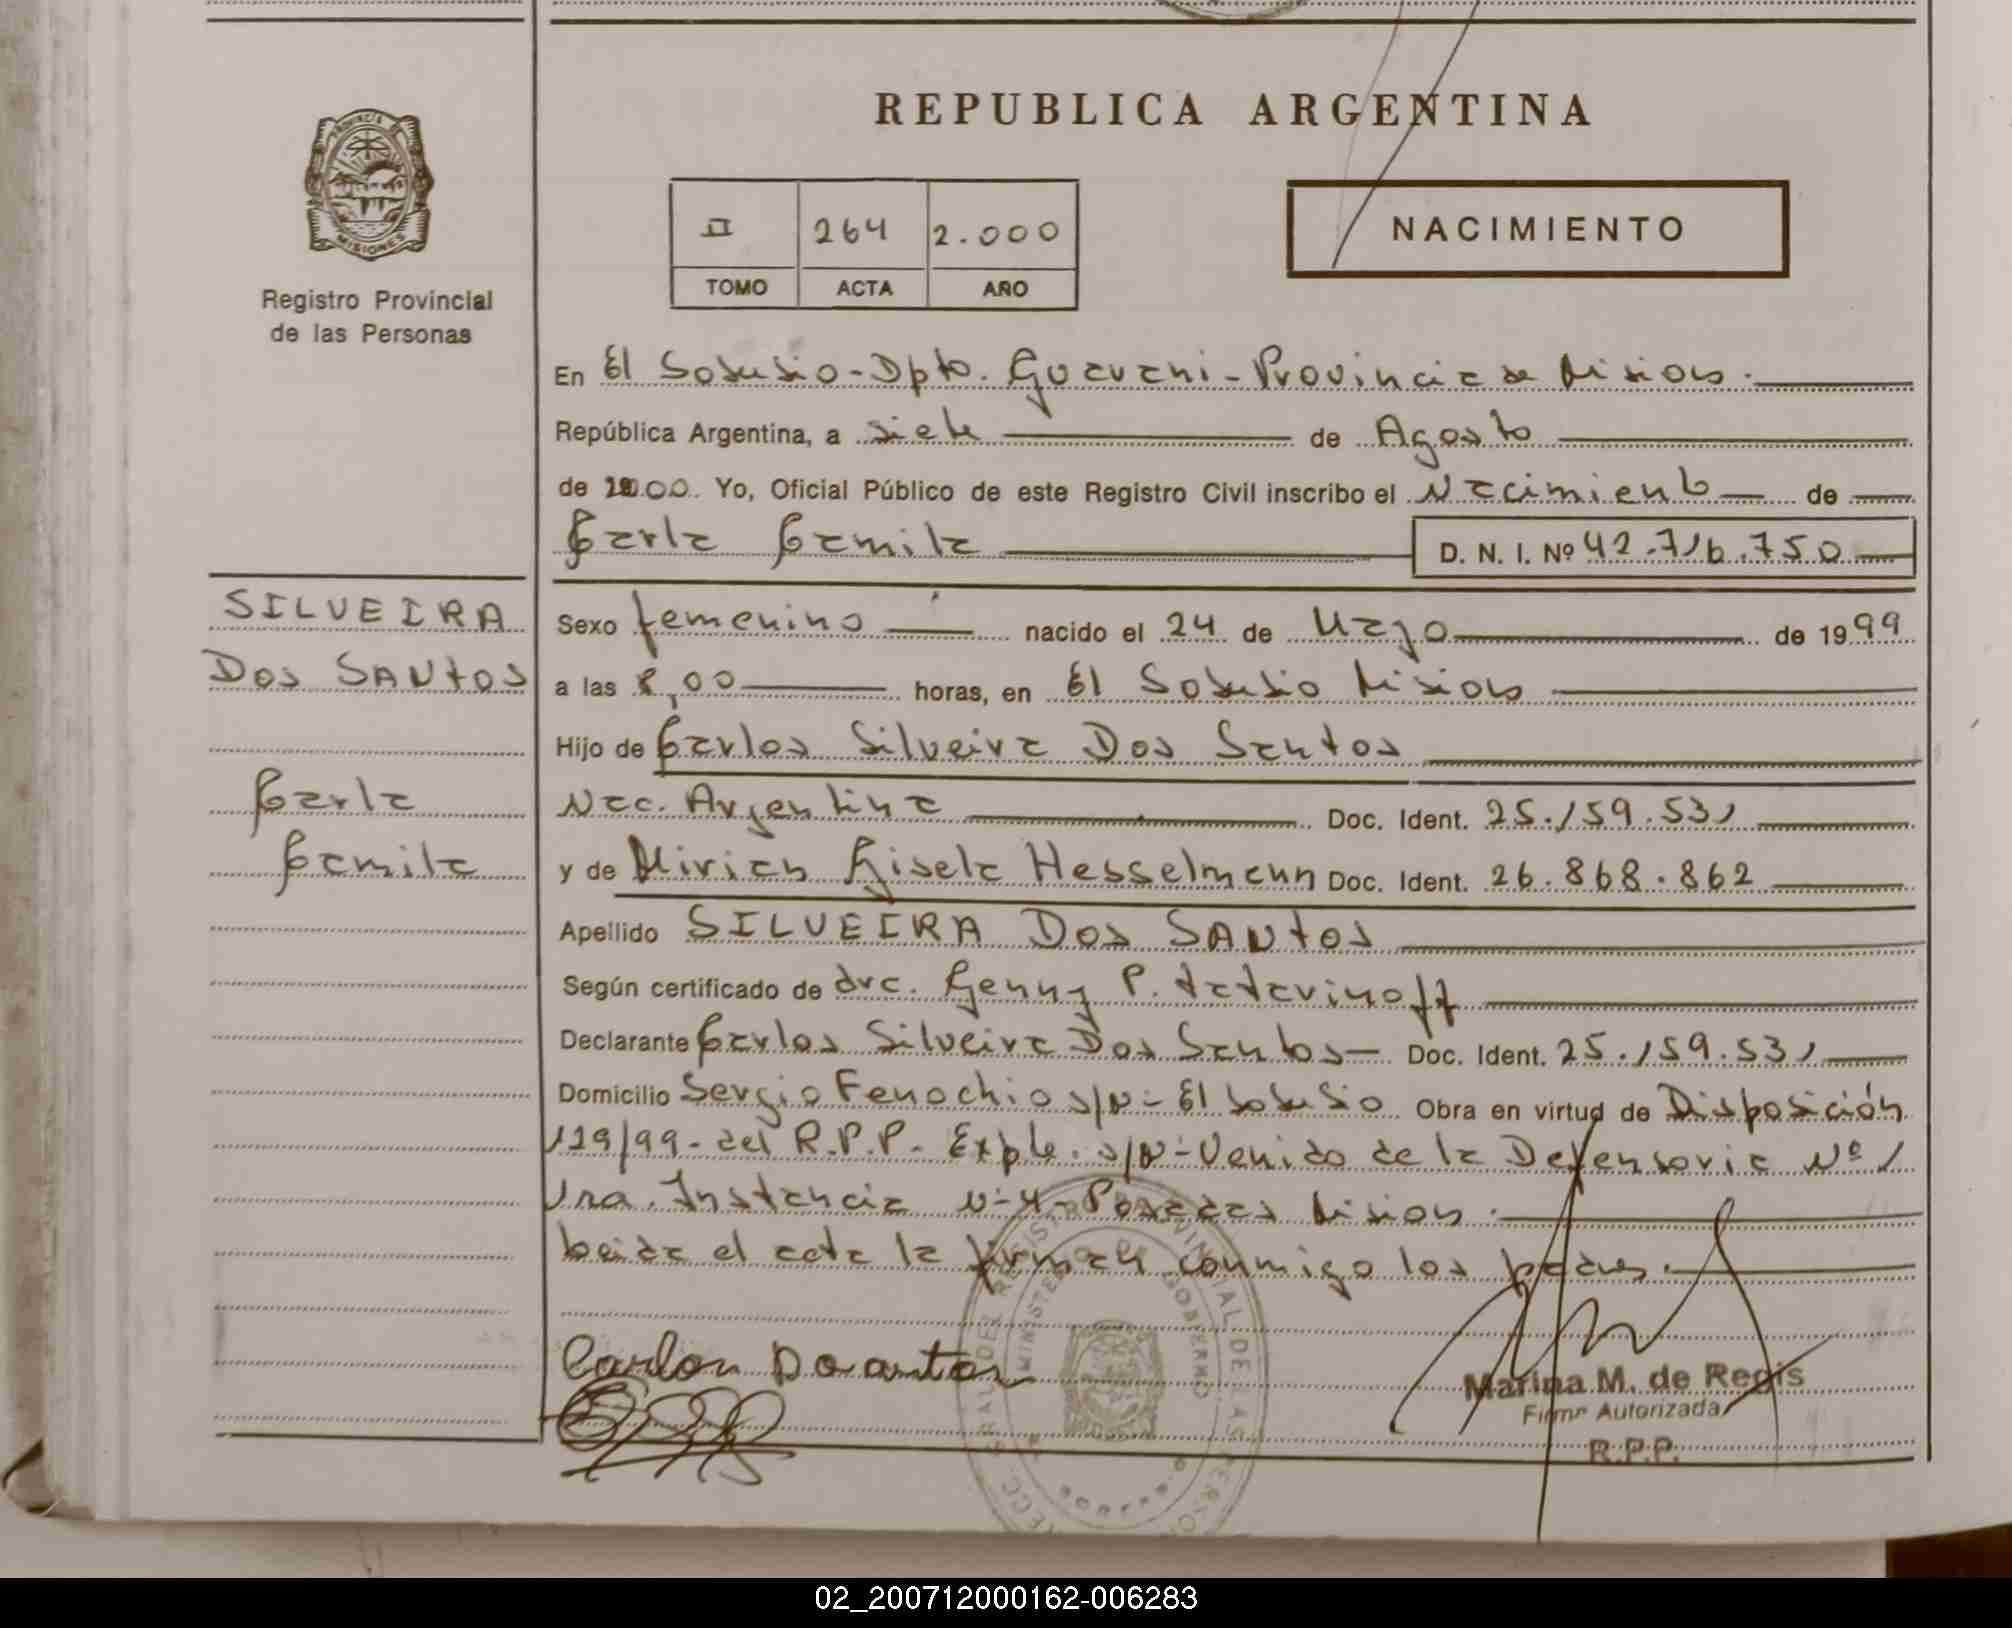 REPUBLICA ARGENTINA
PROVINCIA DE MISIONES
Registro Provincial
de las Personas
II 264 2.000
TOMO ACTA AÑO
NACIMIENTO
En El Soberbio - Dpto. Guarani - Provincia de Misiones.
República Argentina, a siete de Agosto
de 2000. Yo, Oficial Público de este Registro Civil inscribo el Nacimiento de
Carla Camila D. N. I. Nº 42.716.750
SILVEIRA
DOS SANTOS
Carla
Camila
Sexo femenino nacido el 24 de Mayo de 1999
a las 8,00 horas, en El Soberbio Misiones
Hijo de Carlos Silveira Dos Santos
Nac. Argentina Doc. Ident. 25.159.531
y de Mirian Gisela Hesselmann Doc. Ident. 26.868.862
Apellido SILVEIRA DOS SANTOS
Según certificado de dra. Genny P. Tatarinoff
Declarante Carlos Silveira Dos Santos Doc. Ident. 25.159.531
Domicilio Sergio Fenochio s/N - El Soberbio Obra en virtud de Disposición
129/99 - del R.P.P. Expte. s/N - Venido de la Defensoria Nº 1
1ra. Instancia N-4 - Posadas Misiones.
Leida el acta la firman conmigo los padres.
Carlos Do antos
Marina M. de Regis
Firma Autorizada
R.P.P.
02_200712000162-006283